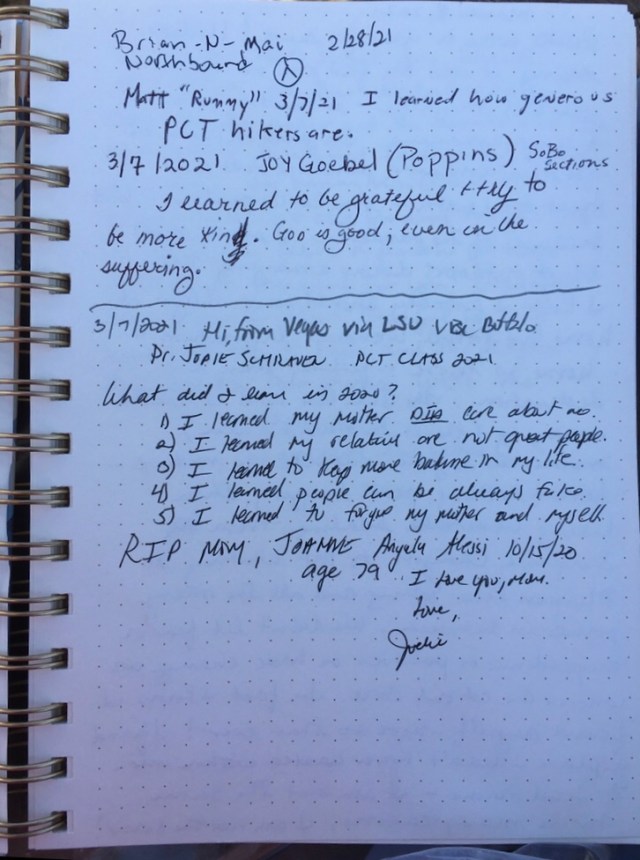 Brian-N-Mai 2/28/21
Northbound
Matt "Rummy" 3/7/21 I learned how generous
PCT hikers are.
3/7/2021 JOY Goebel (Poppins) SoBo
Sections
I learned to be grateful + try to
be more kind. God is good, even in the
suffering.
3/7/2021 Hi, from Vegas via LSU
Dr. JODIE PCT CLASS 2021
What did I learn in 2020?
1) I learned my mother DID care about me.
2) I learned my relatives are not great people.
3) I learned to keep more balance in my life.
4) I learned people can be always fake.
5) I learned to forgive my mother and myself.
RIP MOM, JOANNE Angela Alessi 10/15/20
age 79 I love you, Mom.
Love,
Jodie